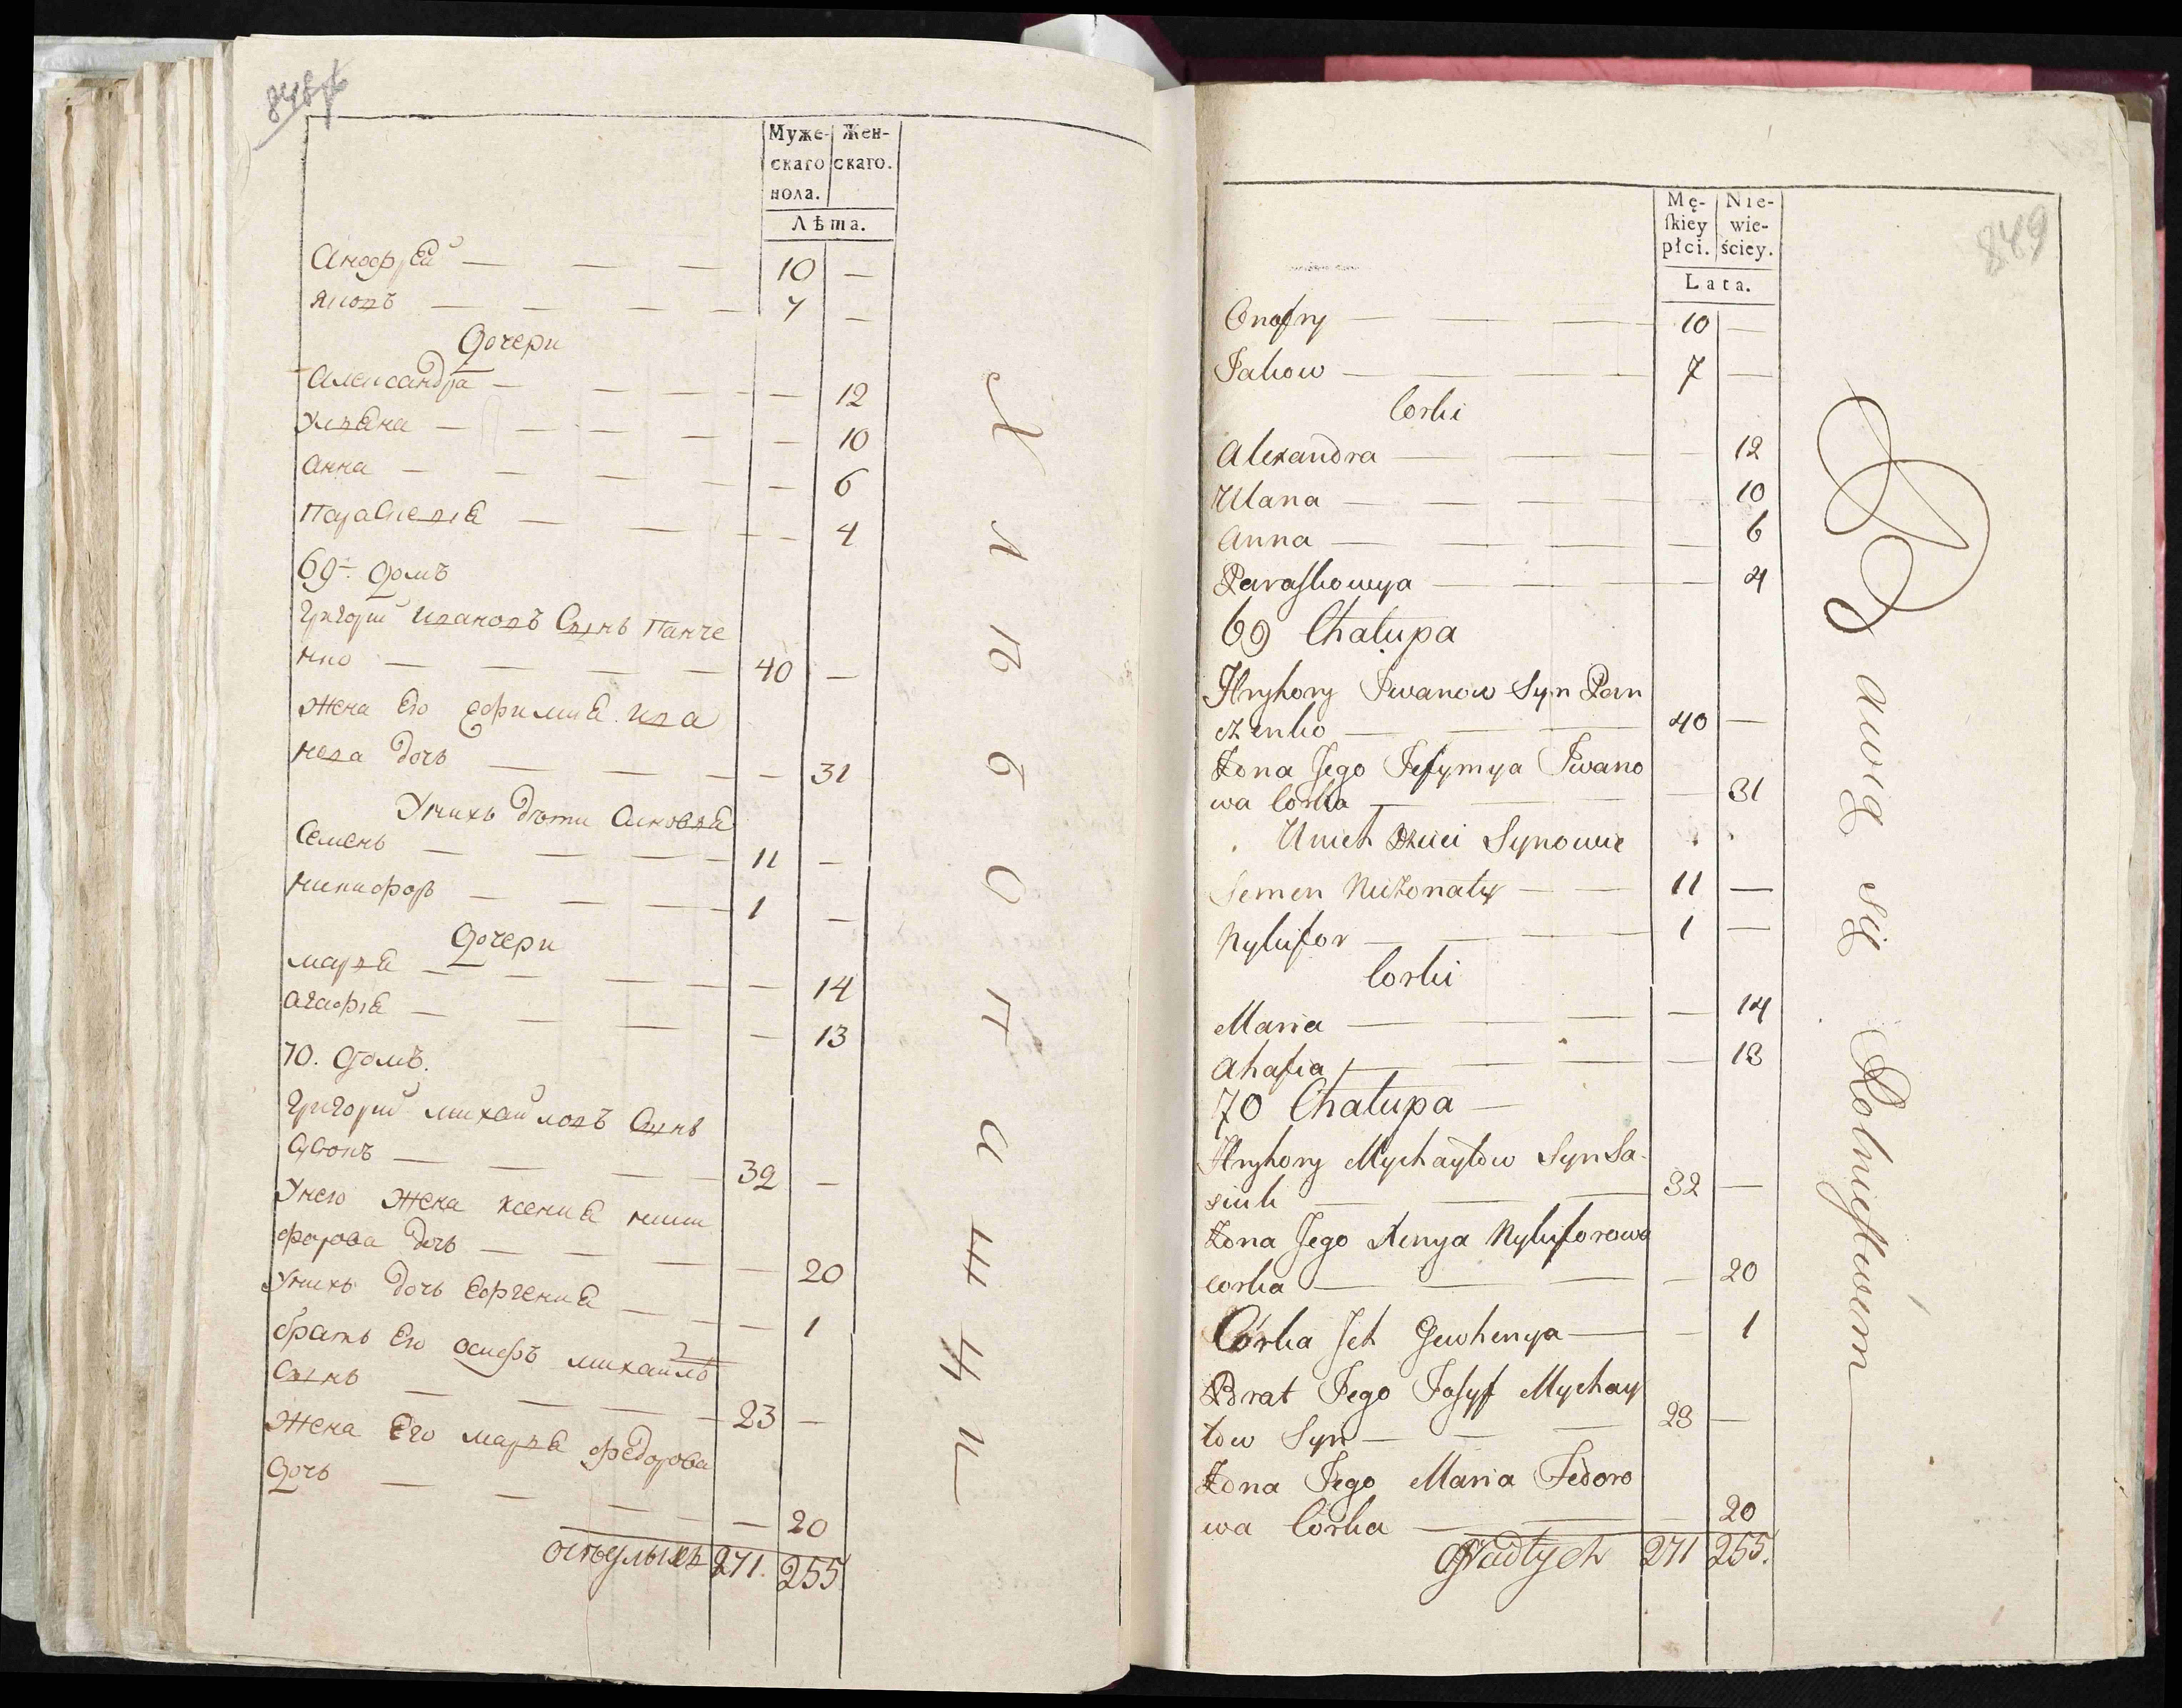 848 об
Муже- Жен-
скаго скаго.
пола.
Лѣта.
Анофрей — — — 10 —
Яковъ — — — — 7 —
Дочери
Александра — — — — — 12
Улвяна — — — — — 10
Анна — — — — — 6
Парасковія — — — — 4
69-. Домъ
Григорий Ивановъ Сынъ Панче
нко — — — — 40 —
жена Его Ефимия Ива
нова дочь — — — — 31
Унихъ дѣти Сыновья
Семенъ — — — — 11 —
Никифоръ — — — — 1 —
Дочери
Марья — — — — — 14
Агафія — — — — 13
70. Домъ.
Григорий Михайловъ Сынъ
— — — — 32 —
Унего жена Ксения Ники
форова дочь — — — — 20
Унихъ дочь Евгения — — — 1
братъ Его Осифъ Михайлов
Сынъ — — — — 23 —
Жена Его Марья Федорова
Дочь — — — — — 20
осѣдлыхъ 271. 255.
Хлѣбопашцы
849
Mę- Nie-
ſkiey wie-
płci. ściey.
Lata.
Onofry — — — 10 —
Jakow — — — — 7 —
Corki
Alexandra — — — — 12
Ulana — — — — — 10
Anna — — — — — 6
Paraskowya — — — — 4
69 Chałupa
Hryhory Iwanow Syn Pan
czenko — — — 40 —
Żona Jego Jefymya Iwano
wa Corka — — — — 31
Unich Dzieci Synowie
Semen Nieżonaty — — 11 —
Nykifor — — — 1 —
Corki
Maria — — — — 14
Ahafia — — — — 13
70 Chałupa —
Hryhory Mychayłow Syn Sa-
siuk — — — 32 —
Żona Jego Xenya Nykiforowa
corka — — — — 20
Córka Jch Gewhenya — — 1
Brat Jego Josyf Mychay
łow Syn — — — 23 —
Żona Jego Maria Fedoro
wa Córka — — — 20
Osiadłych 271 255.
Bawią się Rolnictwem